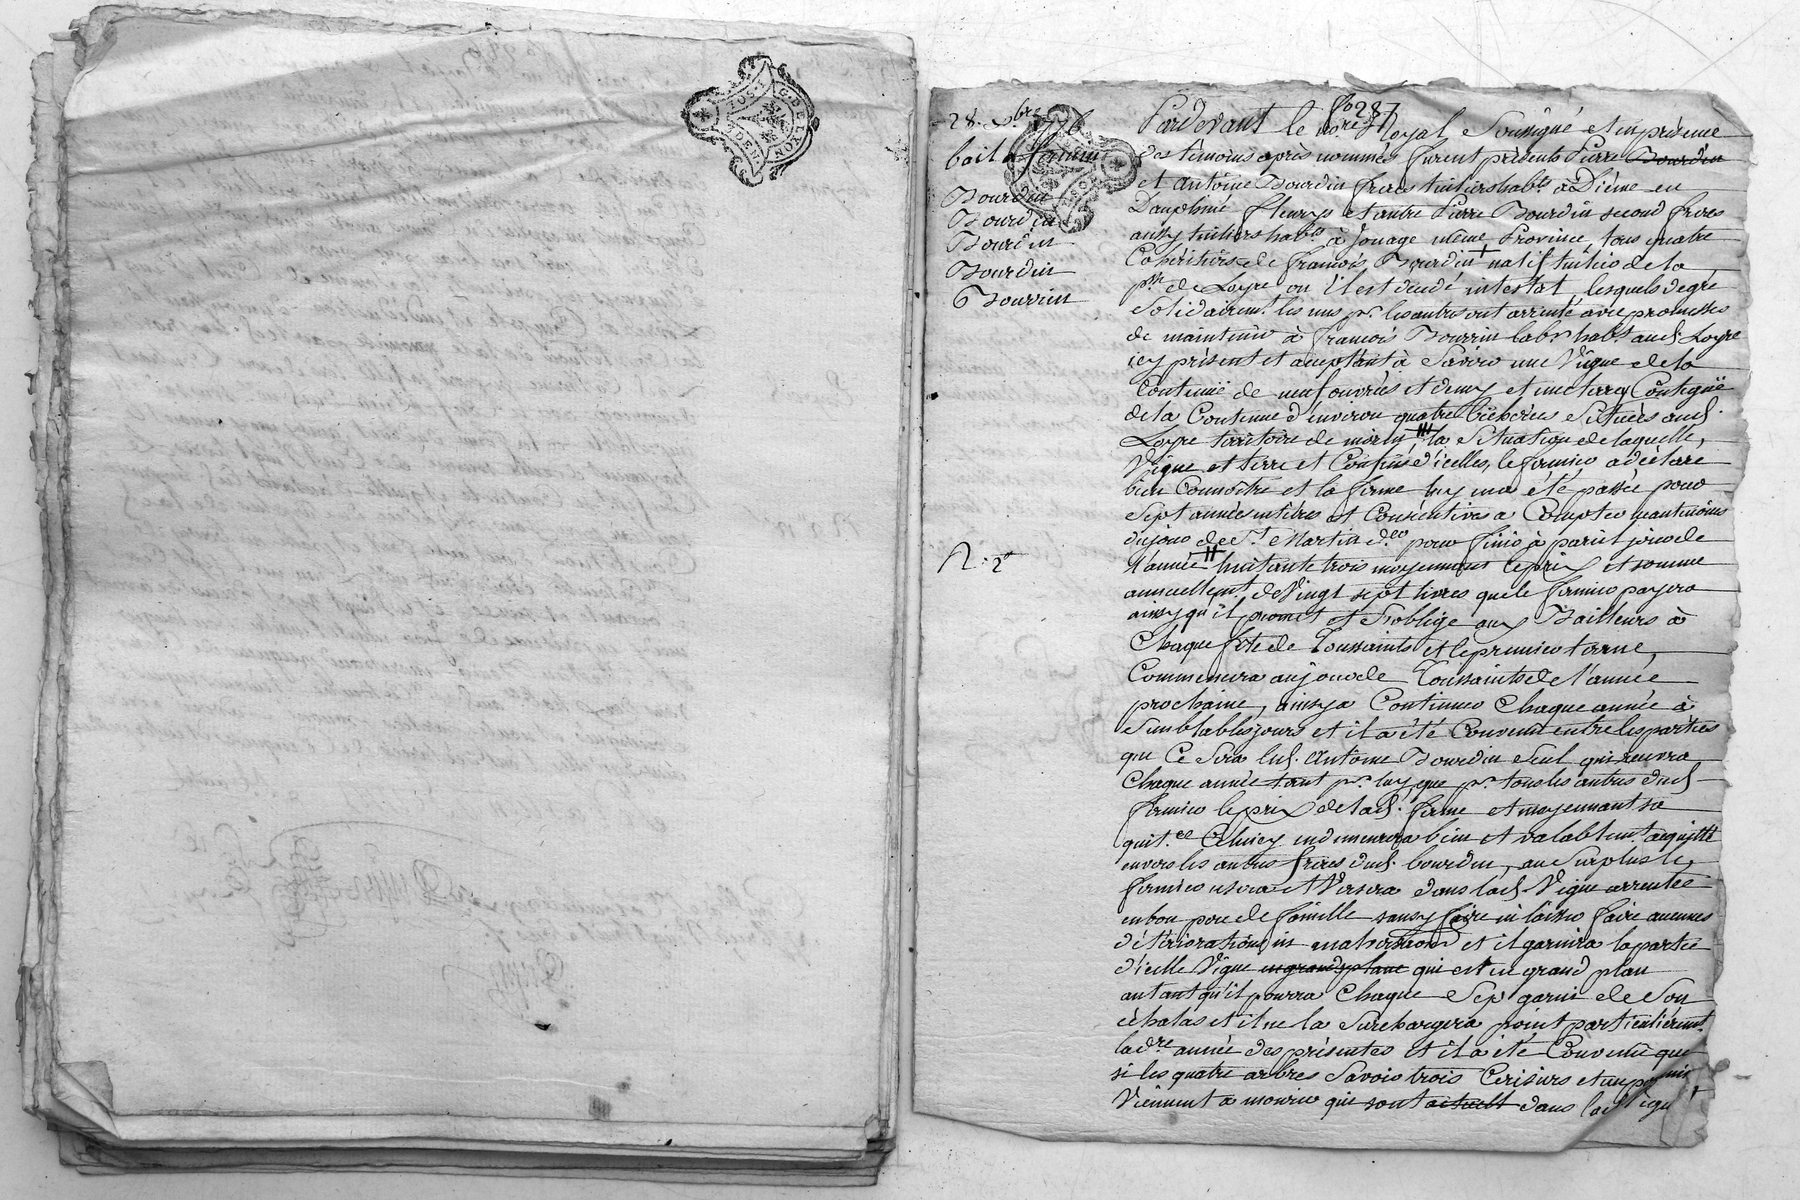 G. DE LYON
fo 287
28. xbre 1776
bail à ferme
Bourdin
Bourdin
Bourdin
Bourdin
à Bourrin
Pardevant le nore Royal Soussigné et en présence
des témoins après nommés furent présents Pierre Bourdin
et Antoine Bourdin frères tuiliers habts à Diéme en
Dauphiné fleury et autre Pierre Bourdin second frères
aussy tuiliers habts à Jonage même Province, tous quatre
Cohéritiers de françois Bourdin natif tuilier de la
psse de Loyre ou il est décédé intestat, lesquels de gré
Solidairemt. les uns pr. les autres ont arrenté avec promesses
de maintenir à françois Bourrin labr habt aud. Loyre
icy présent et acceptant à Savoir une Vigne de la
Contenüe de neuf ouvrées et demy et une terre Contigüe
de la Contenue d'environ quatre bicherées Situées aud.
Loyre territoire de morin, la Situation de laquelle
Vigne et terre et Confins d'icelles, le fermier a déclaré
bien Connoître et la ferme luy en a été passée pour
Sept années entières et Consécutives a Compter néantmoins
du jour de St Martin der pour finir à pareil jour de
N. 2
l'année huitante trois moyennant le prix et somme
annuellemt. de Vingt sept livres que le fermier payera
ainsy qu'il promet et s'oblige aux Bailleurs à
Chaque fête de Toussaints et le premier terme,
Commencera au jour de Toussaints de l'année
prochaine, ainsy a Continuer Chaque année à
Semblables jours et il a été Convenu entre les parties
que Ce Sera led. Antoine Bourdin Seul qui recevra
Chaque année tant pr. luy que pr. tous les autres dud.
fermier le prix de lad. ferme et moyennant sa
quitce Celuicy en demeurera bien et valablemt. acquitté
envers les autres frères dud. bourdin, au Surplus le
fermier usera et Versera dans lad. Vigne arrentée
en bon pere de famille sans y faire ni laisser faire aucunes
détériorations ni malversations et il garnira la partie
d'icelle Vigne en grand plant qui est en grand plan
autant qu'il pourra Chaque Sep garni de Son
échalas et il ne la Surchargera point particulièremt.
la dre année des présentes et il a été Convenu que
si les quatre arbres Savoir trois Cerisiers et un
Viennent à mourir qui sont actuelt dans lad Vigne